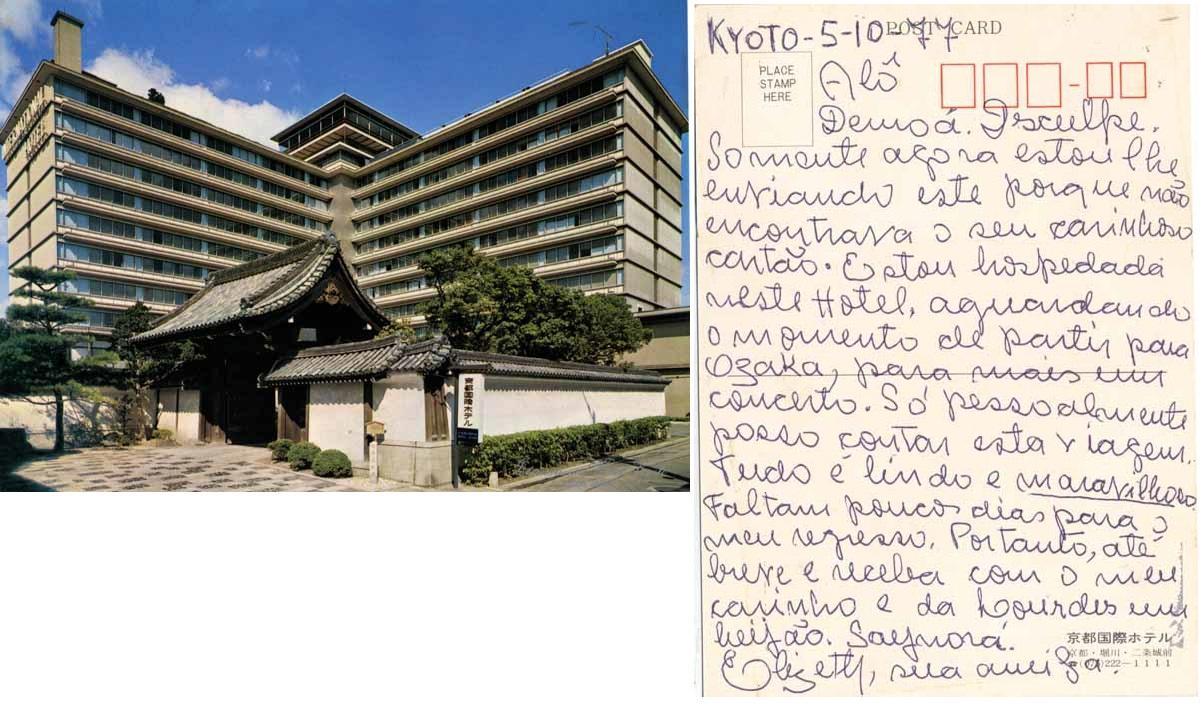 INTERNATIONAL
HOTEL
京都国際ホテル
POST CARD
KYOTO-5-10-77
PLACE
STAMP
HERE
Alô
Demorá. Disculpe.
Somente agora estou lhe
enviando este porque não
encontrava o seu carinhoso
cartão. Estou hospedada
neste Hotel, aguardando
o momento de partir para
Ozaka, para mais um
concerto. Só pessoalmente
posso contar esta viagem.
Tudo é lindo e maravilhoso.
Faltam poucos dias para o
meu regresso. Portanto, até
breve e receba com o meu
carinho e da Lourdes um
beijão. Saynorá.
Elizeth, sua amiga.
京都国際ホテル
京都・堀川・二条城前
☎(075)222-1111